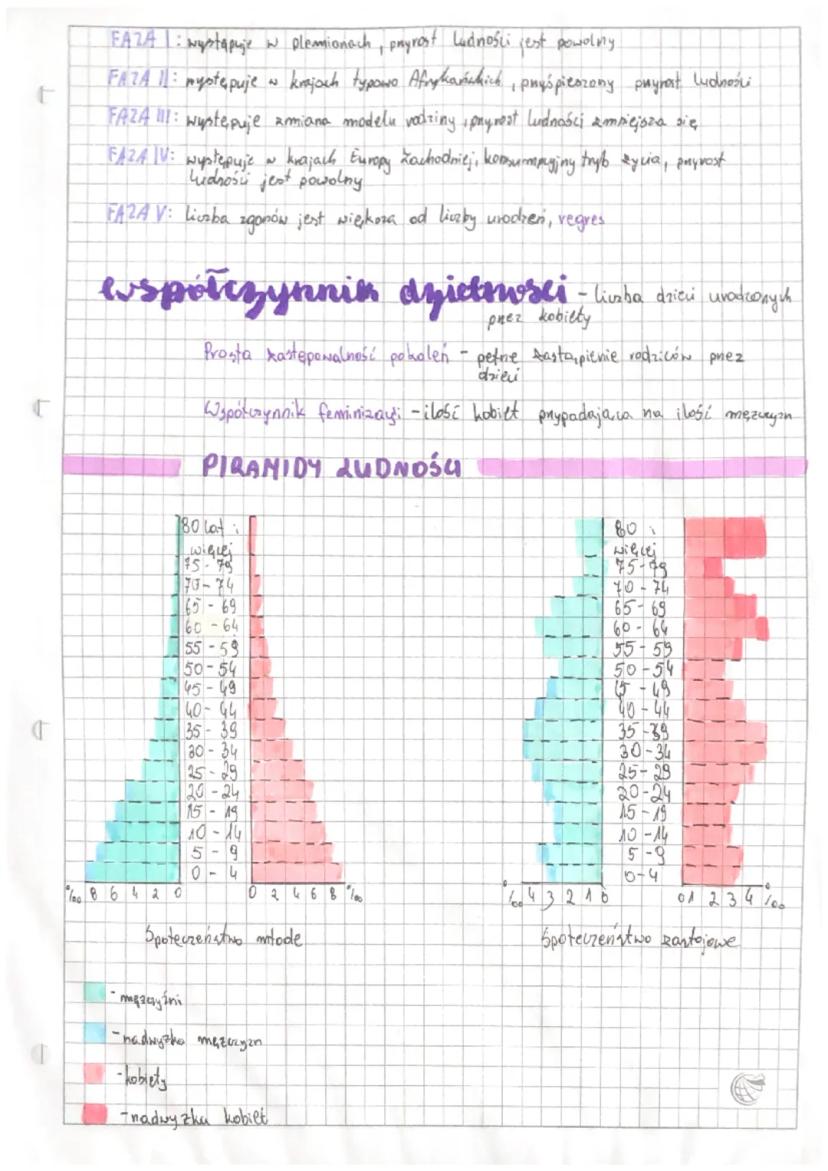 FAZA I: występuje w plemionach, przyrost ludności jest powolny
FAZA II: występuje w krajach typowo Afrykańskich, przyśpieszony przyrost ludności
FAZA III: występuje zmiana modelu rodziny, przyrost ludności zmniejsza się
FAZA IV: występuje w krajach Europy Zachodniej, konsumpcyjny tryb życia, przyrost
ludności jest powolny
FAZA V: liczba zgonów jest większa od liczby urodzeń, regres
współczynnik dzietności - liczba dzieci urodzonych
przez kobiety
Prosta zastępowalność pokoleń - pełne zastąpienie rodziców przez
dzieci
Współczynnik feminizacji - ilość kobiet przypadająca na ilość mężczyzn
PIRAMIDY LUDNOŚCI
80 lat i
więcej
75-79
70-74
65-69
60-64
55-59
50-54
45-49
40-44
35-39
30-34
25-29
20-24
15-19
10-14
5-9
0-4
‰ 8 6 4 2 0 0 2 4 6 8 ‰
Społeczeństwo młode
80 i
więcej
75-79
70-74
65-69
60-64
55-59
50-54
45-49
40-44
35-39
30-34
25-29
20-24
15-19
10-14
5-9
0-4
‰ 4 3 2 1 0 0 1 2 3 4 ‰
Społeczeństwo zastojowe
- mężczyźni
- nadwyżka mężczyzn
- kobiety
- nadwyżka kobiet